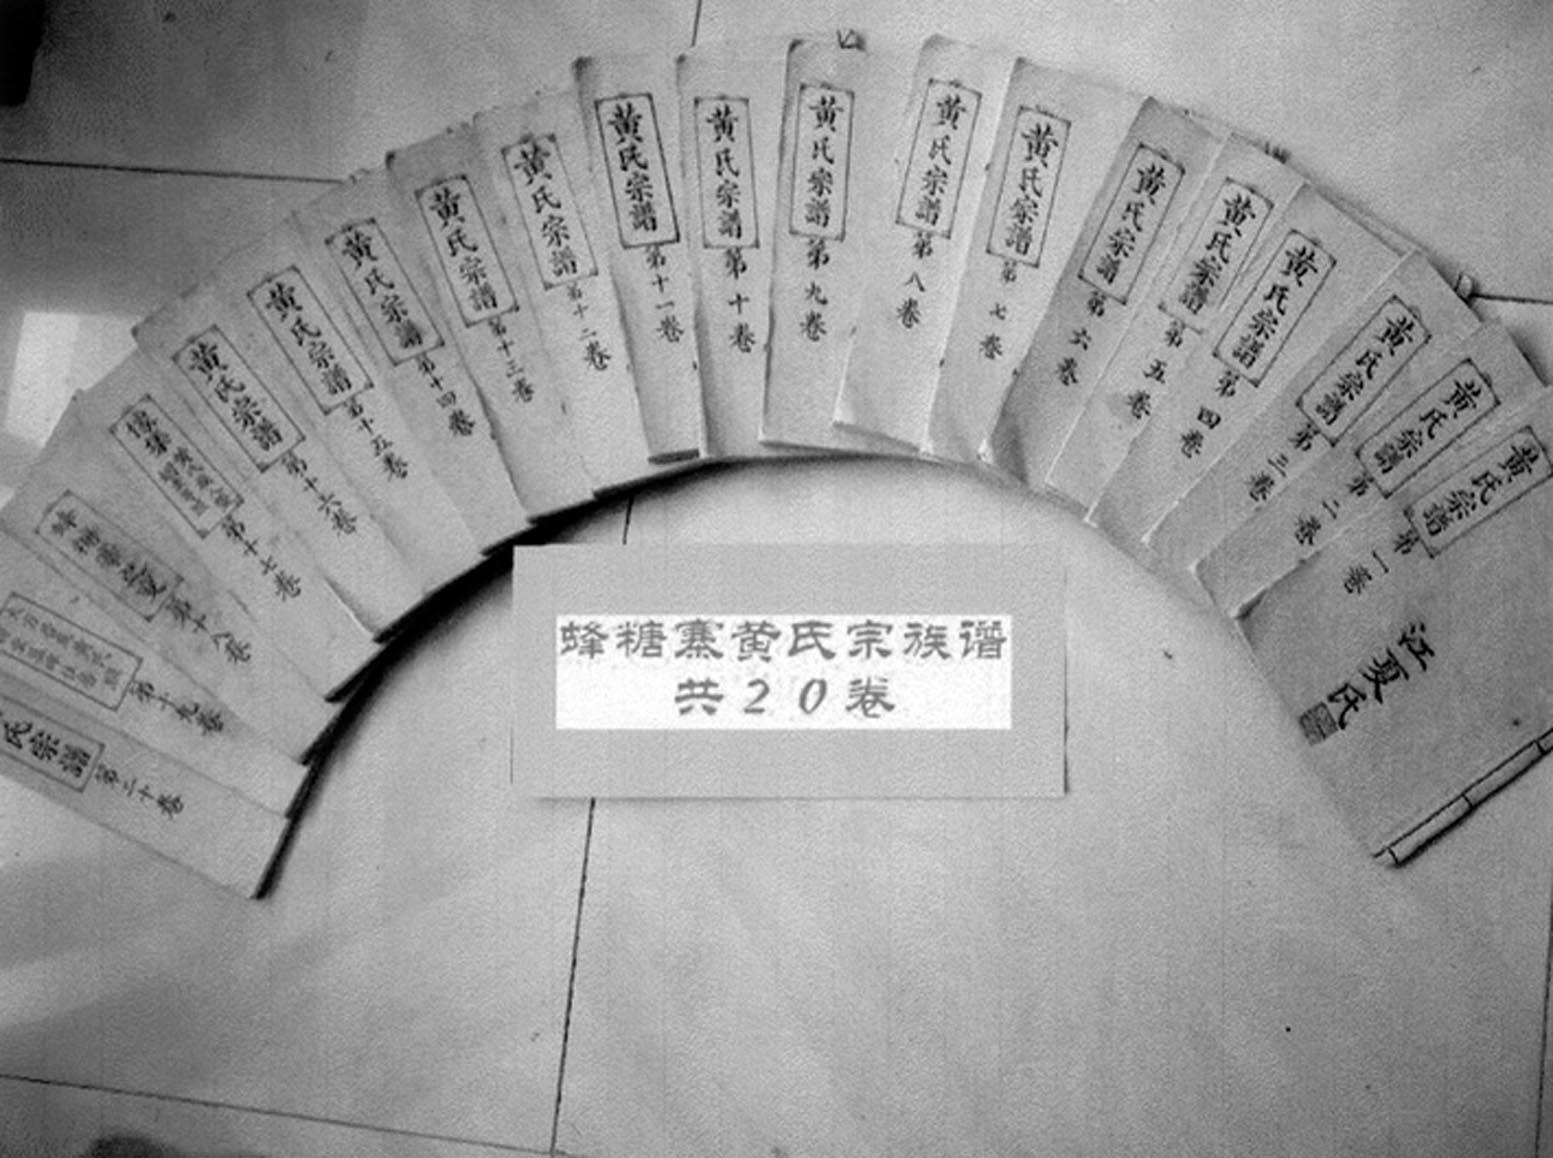 黄氏宗譜 第一卷
江夏氏
黄氏宗譜 第二卷
黄氏宗譜 第三卷
黄氏宗譜 第四卷
黄氏宗譜 第五卷
黄氏宗譜 第六卷
黄氏宗譜 第七卷
黄氏宗譜 第八卷
黄氏宗譜 第九卷
黄氏宗譜 第十卷
黄氏宗譜 第十一卷
黄氏宗譜 第十二卷
黄氏宗譜 第十三卷
黄氏宗譜 第十四卷
黄氏宗譜 第十五卷
黄氏宗譜 第十六卷
第十七卷
第十八卷
第十九卷
氏宗譜 第二十卷
蜂糖寨黄氏宗族谱
共20卷